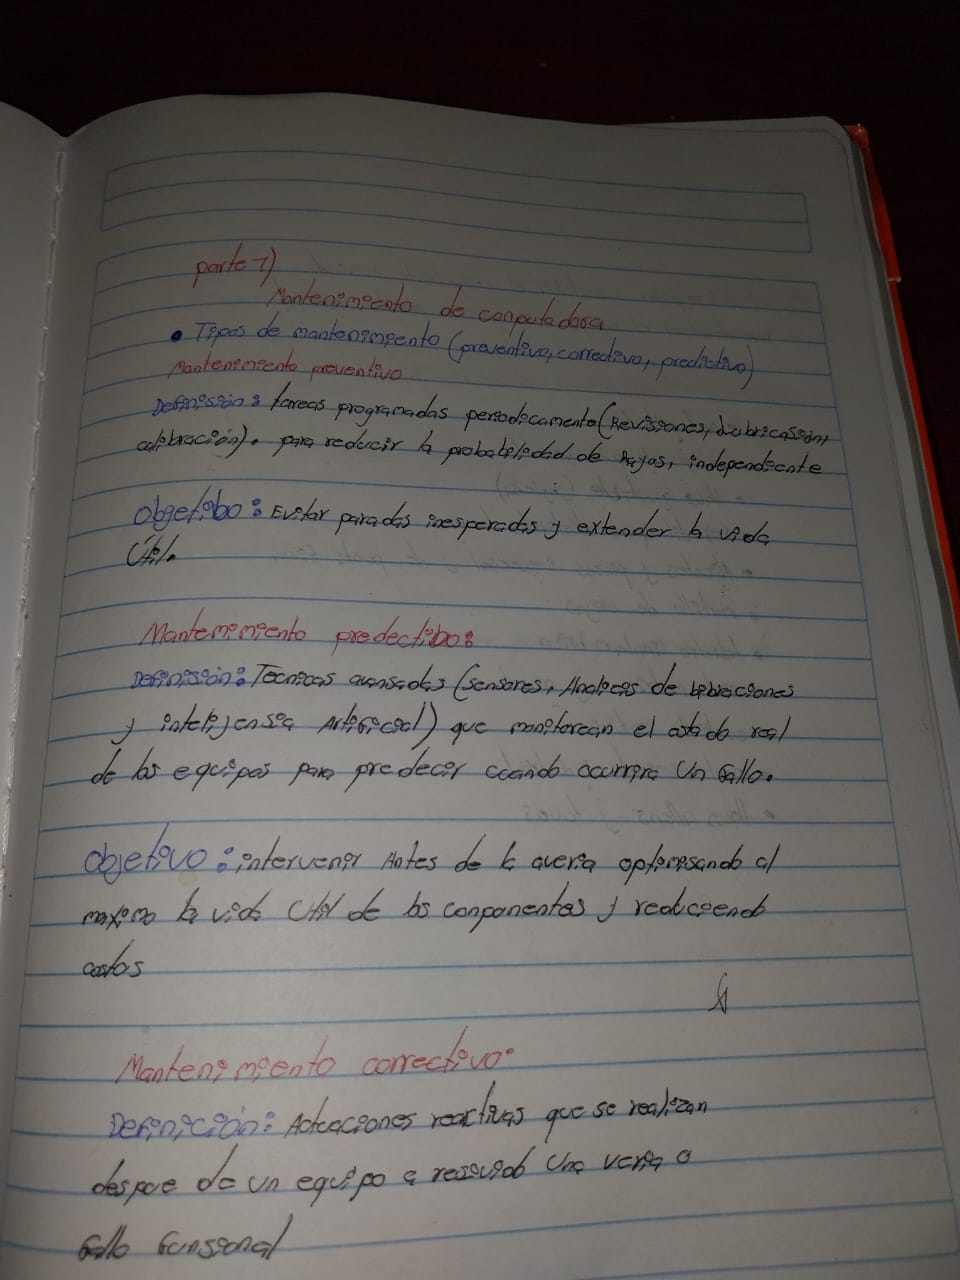 parte 1)
Mantenimiento de conputadora
• Tipos de mantenimiento (preventivo, correctivo, predictivo)
Mantenimiento preventivo
Definisión: tareas programadas periodicamente (Revisiones, Lubricasión,
calibración). para reducir la probabilidad de fayos, independiente
Objetibo: Evitar paradas inesperadas y extender la vida
Útil.
Mantenimiento predectibo:
Definisión: Tecnicas avansadas (sensores, Analicis de bibraciones
y intelijensia Artificial) que monitorean el estado real
de los equipos para predecir cuando ocurrira Un fallo.
objetivo: intervenir Antes de la averia optimisando al
maximo la vida Util de los conponentes y reduciendo
costos
Mantenimiento correctivo:
Definición: Actuaciones reactivas que se realizan
despue de un equipo a Una veria o
fallo funsional